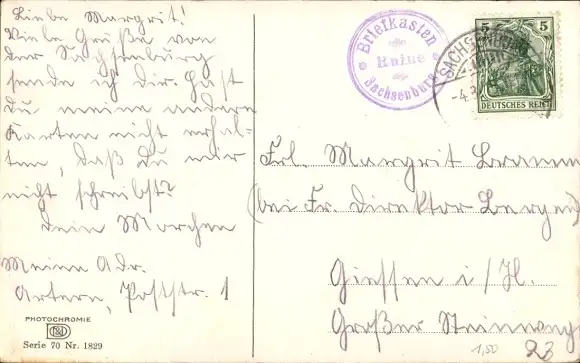 Liebe Margrit!
Viele Grüße von
der Sachsenburg
sende ich dir. Hast
Du meine andere
Karten nicht erhal-
ten, daß Du mir
nicht schreibst?
Dein
Meine Adr.
Artern, Poststr. 1
PHOTOCHROMIE
Serie 70 Nr. 1829
Briefkasten
Ruine
Sachsenburg
SACHSENBURG
5 5
DEUTSCHES REICH
Frl. Margrit
(bei Fr. Direktor
Giessen i/H.
Großer Steinweg
1,50 23